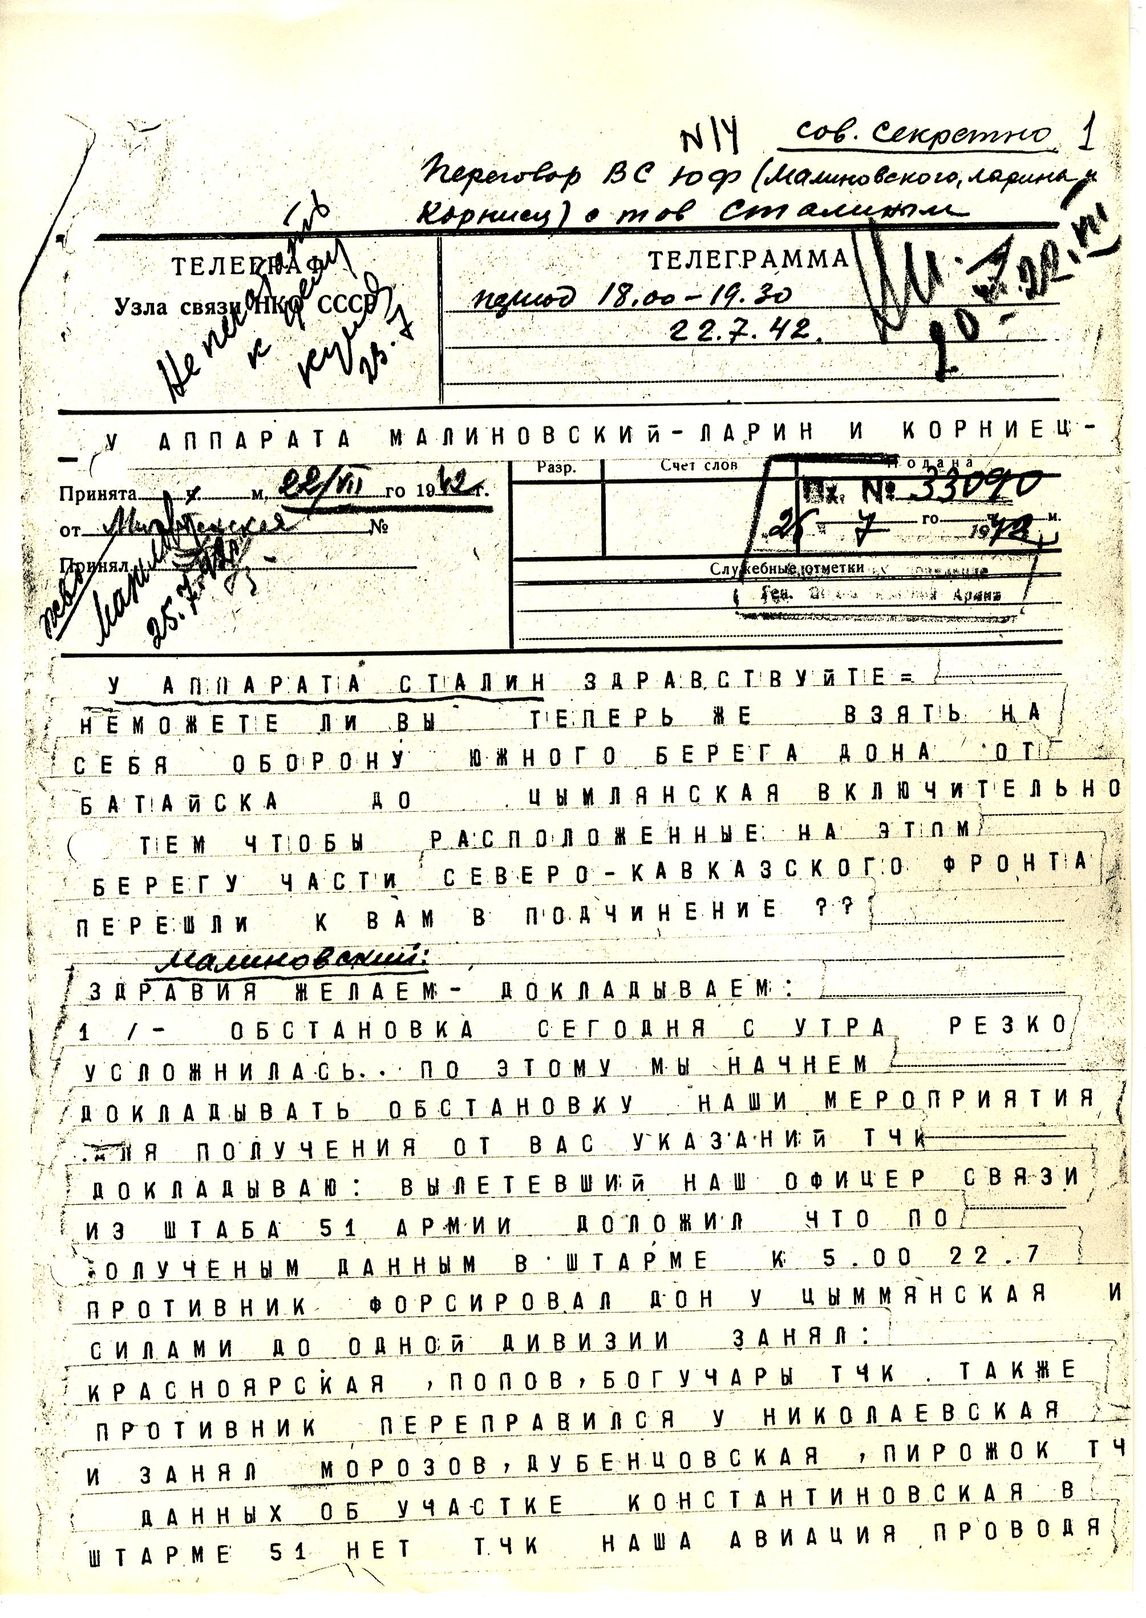 N14 сов. секретно 1
Переговор ВС ЮФ (Малиновского, Ларина и
Корниец) с тов Сталиным
ТЕЛЕГРАФ
Узла связи НК СССР
Не печатать
к
23.7
ТЕЛЕГРАММА
период 18.00-19.30
22.7.42.
22.VII
У АППАРАТА МАЛИНОВСКИЙ-ЛАРИН И КОРНИЕЦ-
Принята ч. м, 22/VII го 1942г.
от №
Принял
25.7.42
Разр.
Счет слов
Подана
Вх. № 33090
25 7 го 1942 м.
Служебные отметки
Ген. Армии
У АППАРАТА СТАЛИН ЗДРАВСТВУЙТЕ=
НЕМОЖЕТЕ ЛИ ВЫ ТЕПЕРЬ ЖЕ ВЗЯТЬ НА
СЕБЯ ОБОРОНУ ЮЖНОГО БЕРЕГА ДОНА ОТ
БАТАЙСКА ДО ЦЫМЛЯНСКАЯ ВКЛЮЧИТЕЛЬНО
ТЕМ ЧТОБЫ РАСПОЛОЖЕННЫЕ НА ЭТОМ
БЕРЕГУ ЧАСТИ СЕВЕРО-КАВКАЗСКОГО ФРОНТА
ПЕРЕШЛИ К ВАМ В ПОДЧИНЕНИЕ ??
Малиновский:
ЗДРАВИЯ ЖЕЛАЕМ- ДОКЛАДЫВАЕМ:
1 /- ОБСТАНОВКА СЕГОДНЯ С УТРА РЕЗКО
УСЛОЖНИЛАСЬ.. ПО ЭТОМУ МЫ НАЧНЕМ
ДОКЛАДЫВАТЬ ОБСТАНОВКУ НАШИ МЕРОПРИЯТИЯ
ДЛЯ ПОЛУЧЕНИЯ ОТ ВАС УКАЗАНИЙ ТЧК
ДОКЛАДЫВАЮ: ВЫЛЕТЕВШИЙ НАШ ОФИЦЕР СВЯЗИ
ИЗ ШТАБА 51 АРМИИ ДОЛОЖИЛ ЧТО ПО
ПОЛУЧЕНЫМ ДАННЫМ В ШТАРМЕ К 5.00 22.7
ПРОТИВНИК ФОРСИРОВАЛ ДОН У ЦЫММЯНСКАЯ И
СИЛАМИ ДО ОДНОЙ ДИВИЗИИ ЗАНЯЛ:
КРАСНОЯРСКАЯ ,ПОПОВ,БОГУЧАРЫ ТЧК . ТАКЖЕ
ПРОТИВНИК ПЕРЕПРАВИЛСЯ У НИКОЛАЕВСКАЯ
И ЗАНЯЛ МОРОЗОВ,ДУБЕНЦОВСКАЯ ,ПИРОЖОК ТЧ
ДАННЫХ ОБ УЧАСТКЕ КОНСТАНТИНОВСКАЯ В
ШТАРМЕ 51 НЕТ ТЧК НАША АВИАЦИЯ ПРОВОДЯ